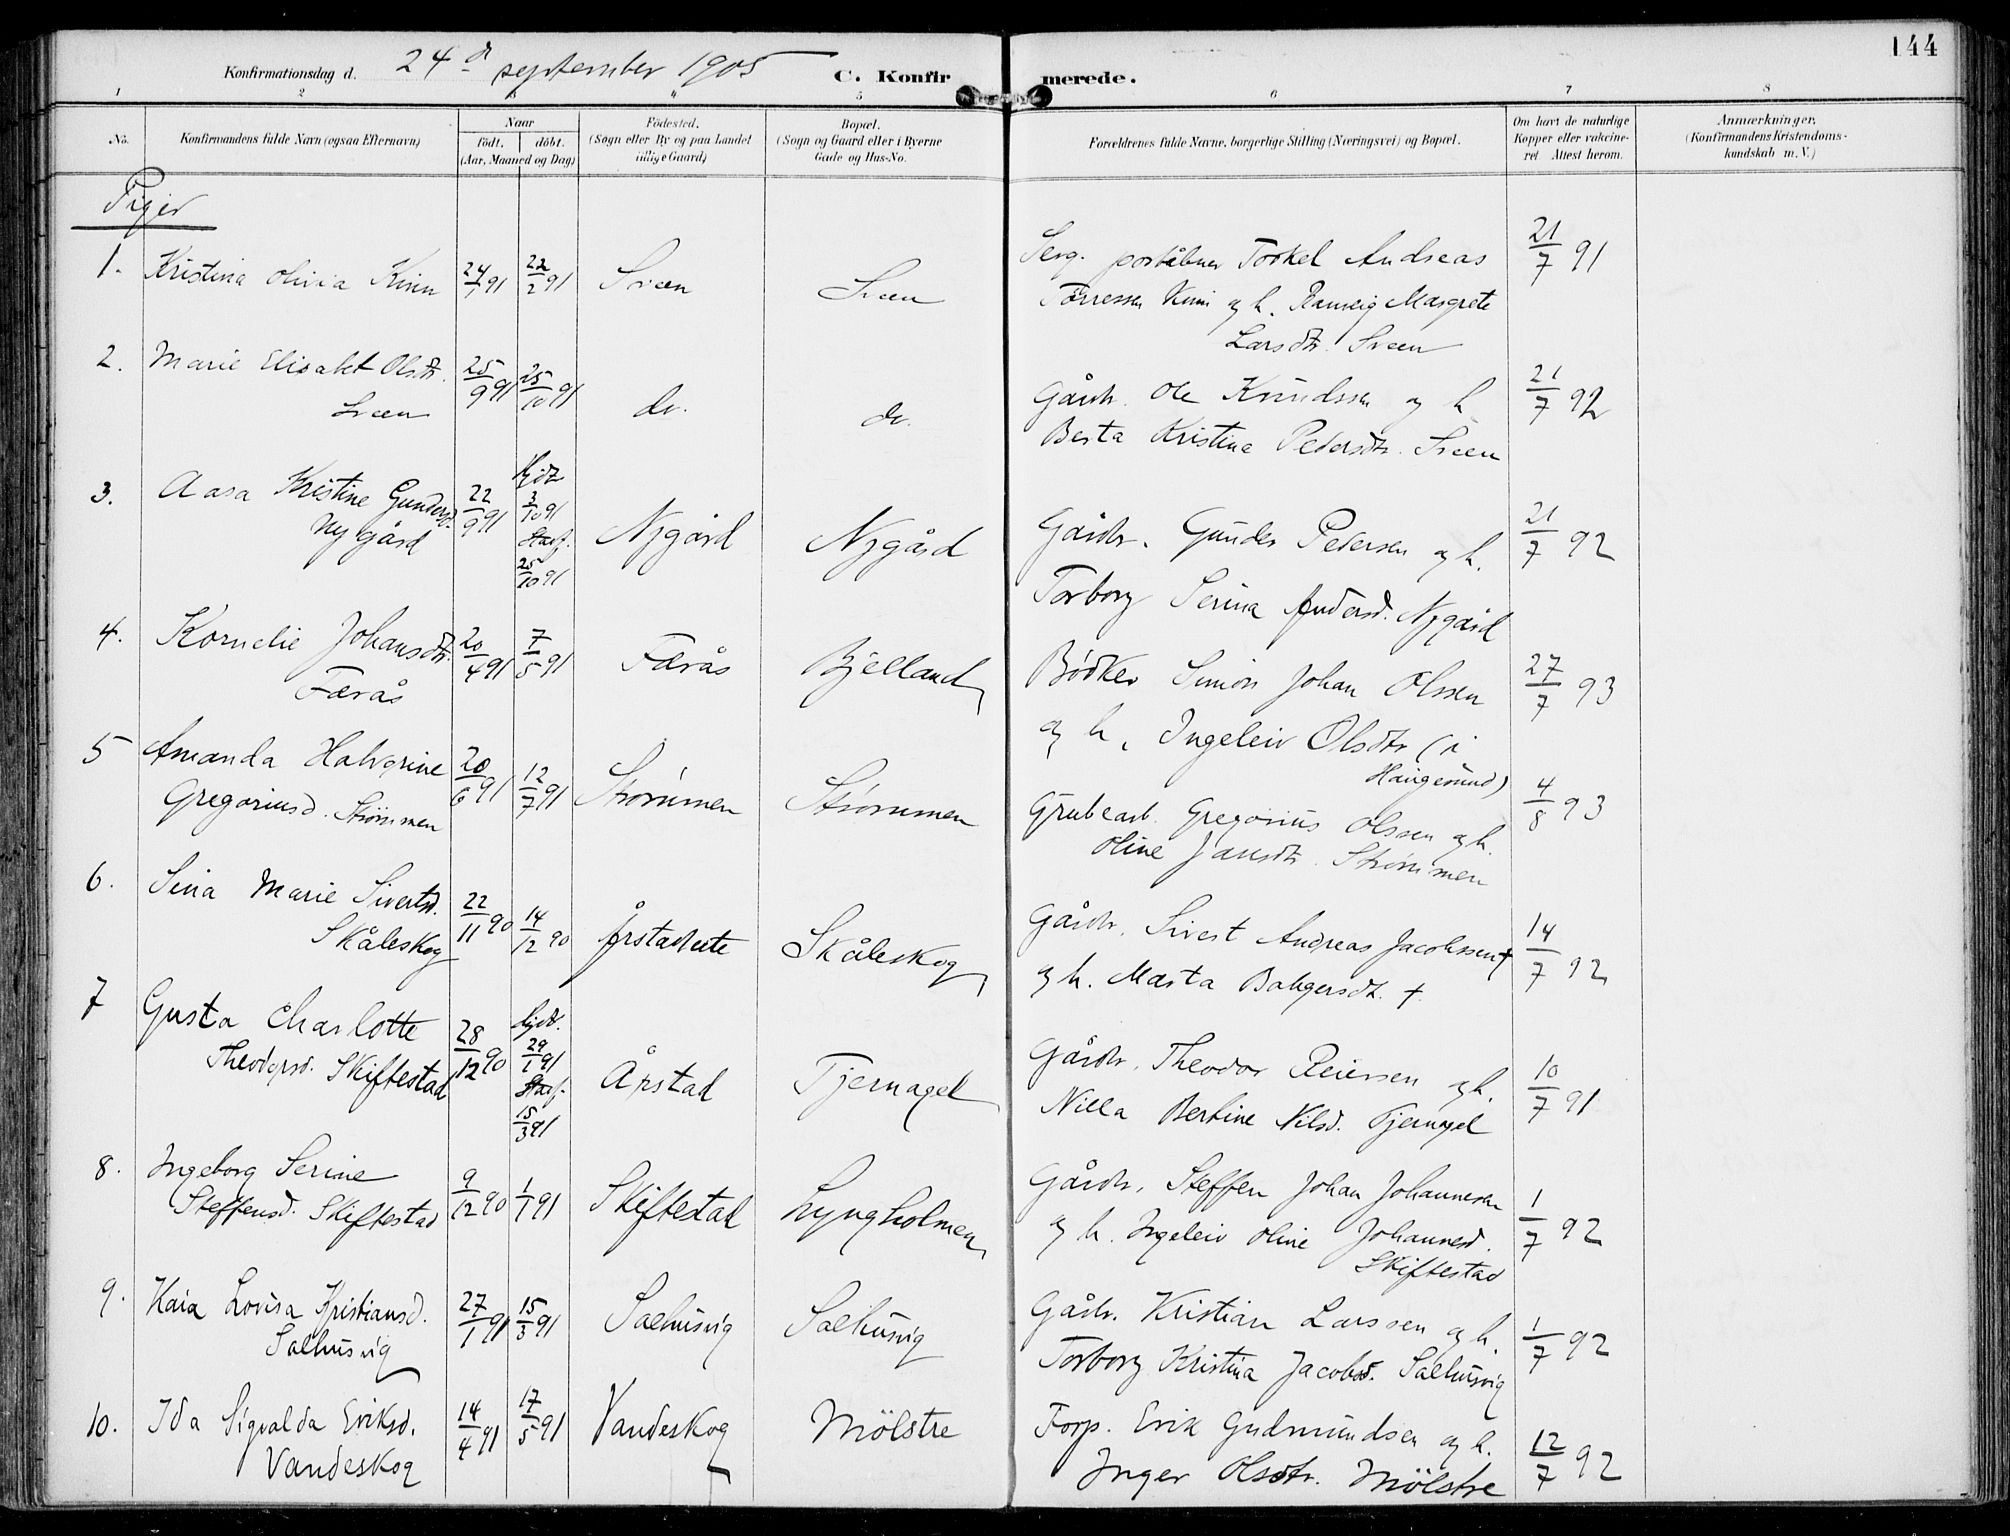 144
Konfirmationsdag d. 24de september 1905 C. Konfirmerede.
1 2 3 4 5 6 7 8
No. Konfirmandens fulde Navn (ogsaa Efternavn) Naar födt. döbt. (Aar, Maaned og Dag) Födested. (Sogn eller By og paa Landet tillige Gaard) Bopæl. (Sogn og Gaard eller i Byerne Gade og Hus-No. Forældrenes fulde Navne, borgerlige Stilling (Næringsvei) og Bopæl. Om havt de naturlige Kopper eller vaksineret. Attest herom. Anmærkninger. (Konfirmandens Kristendomskundskab m. V.)
Piger
1. Kristina Olivia Kinn 24/1 91 22/2 91 Sveen Sveen Serg. poståbner Torkel Andreas 21/7 91
Tørressen Kinn og h. Ranveig Margrete
Larsdtr. Sveen
2. Marie Elisabet Olsdtr. 25/9 91 25/10 91 do. do. Gårdr. Ole Knudssen og h. 21/7 92
Sveen Berta Kristina Pedersdtr. Sveen
3. Aasa Kristine Gundersd. 22/9 91 hjdt 3/10 91 Stadf. 25/10 91 Nygård Nygård Gårdr. Gunder Pedersen og h. 21/7 92
Nygård Torborg Serina Andersd. Nygård
4. Kornelie Johansdtr. 20/4 91 7/5 91 Færås Bjelland Bødker Simon Johan Olssen 27/7 93
Færås og h. Ingeleiv Olsdtr (i
Haugesund)
5 Amanda Halvgrine 20/6 91 12/7 91 Strømmen Strømmen Grubearb. Gregorius Olssen og h. 4/8 93
Gregoriusd. Strømmen Oline Jansdtr. Strømmen
6. Sina Marie Sivertsd. 22/11 90 14/12 90 Årstadtete Skåleskog Gårdr. Sivert Andreas Jacobssen † 14/7 92
Skåleskog og h. Marta Bolgersdt. †.
7 Gusta Charlotte 28/12 90 hjdt. 29/1 91 Stadf. 15/3 91 Årstad Tjernagel Gårdr. Theodor Reiersen og h. 10/7 91
Theodorsd. Skiftestad Nilla Bertine Nilsd. Tjernagel
8. Ingeborg Serine 9/12 90 1/1 91 Skiftestad Lyngholmen Gårdr. Steffen Johan Johannesen 1/7 92
Steffensd. Skiftestad og h. Ingeleiv Oline Johannesd.
Skiftestad
9. Kaia Lovisa Kristiansd. 27/1 91 15/3 91 Salhusvig Salhusvig Gårdr. Kristian Larssen og h. 1/7 92
Salhusvig Torborg Kristina Jacobsd. Salhusvig
10. Ida Sigvalda Eriksd. 14/4 91 17/5 91 Vandeskog Mölstre Forp. Erik Gudmundsen og h. 12/7 92
Vandeskog Inger Olsdtr. Mölstre